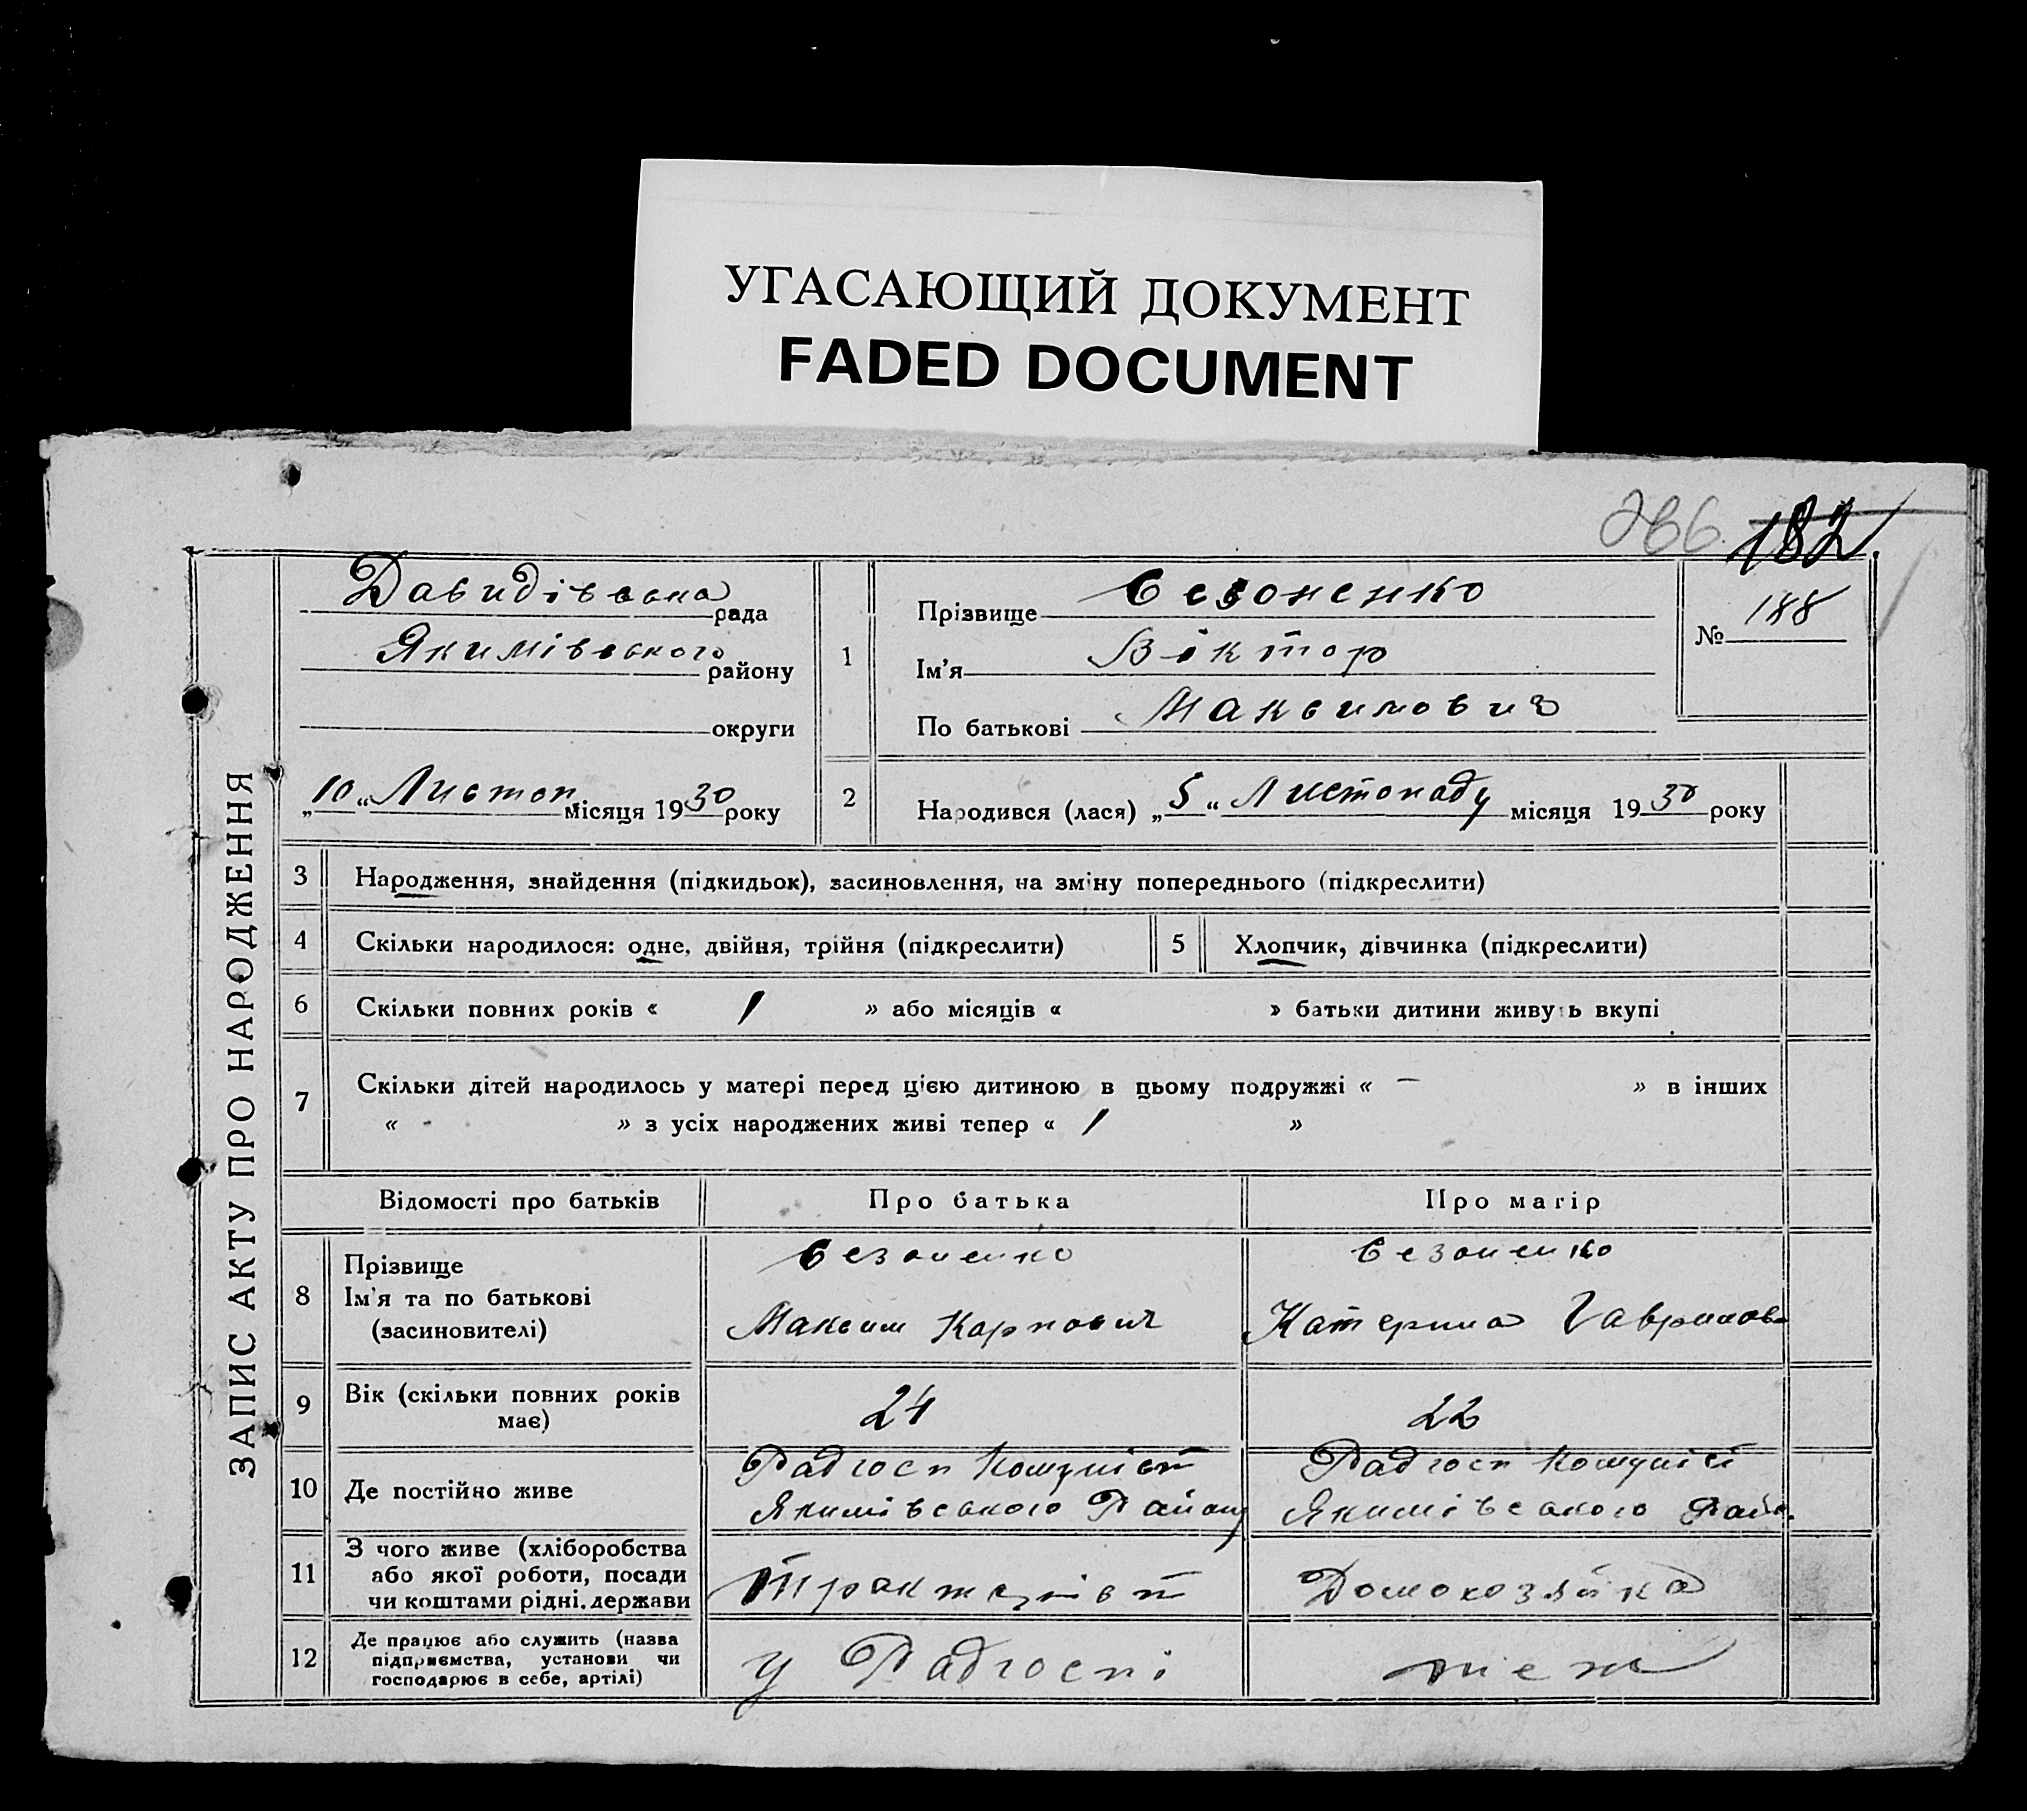 УГАСАЮЩИЙ ДОКУМЕНТ
FADED DOCUMENT
266. 182.
ЗАПИС АКТУ ПРО НАРОДЖЕННЯ
Давидівська рада
Якимівського району
округи
„10“ Листоп місяця 1930 року
1
Прізвище Сезоненко
Ім’я Віктор
По батькові Максимович
№ 188
2 Народився (лася) „5“ Листопаду місяця 1930 року
3 Народження, знайдення (підкидьок), засиновлення, на зміну попереднього (підкреслити)
4 Скільки народилося: одне, двійня, трійня (підкреслити) 5 Хлопчик, дівчинка (підкреслити)
6 Скільки повних років « 1 » або місяців « » батьки дитини живуть вкупі
7 Скільки дітей народилось у матері перед цією дитиною в цьому подружжі « – » в інших
« - » з усіх народжених живі тепер « 1 »
Відомості про батьків Про батька Про матір
8 Прізвище Сезоненко Сезоненко
Ім’я та по батькові Максим Карпович Катерина Гаврилова
(засиновителі)
9 Вік (скільки повних років має) 24 22
10 Де постійно живе Радгосп Комуніст Радгосп Комуніст
Якимівського Району Якимівського Райо.
11 З чого живе (хліборобства
або якої роботи, посади
чи коштами рідні, держави Тракторіст Домохозяйка
12 Де працює або служить (назва
підприємства, установи чи
господарює в себе, артілі) у Радгоспі теж